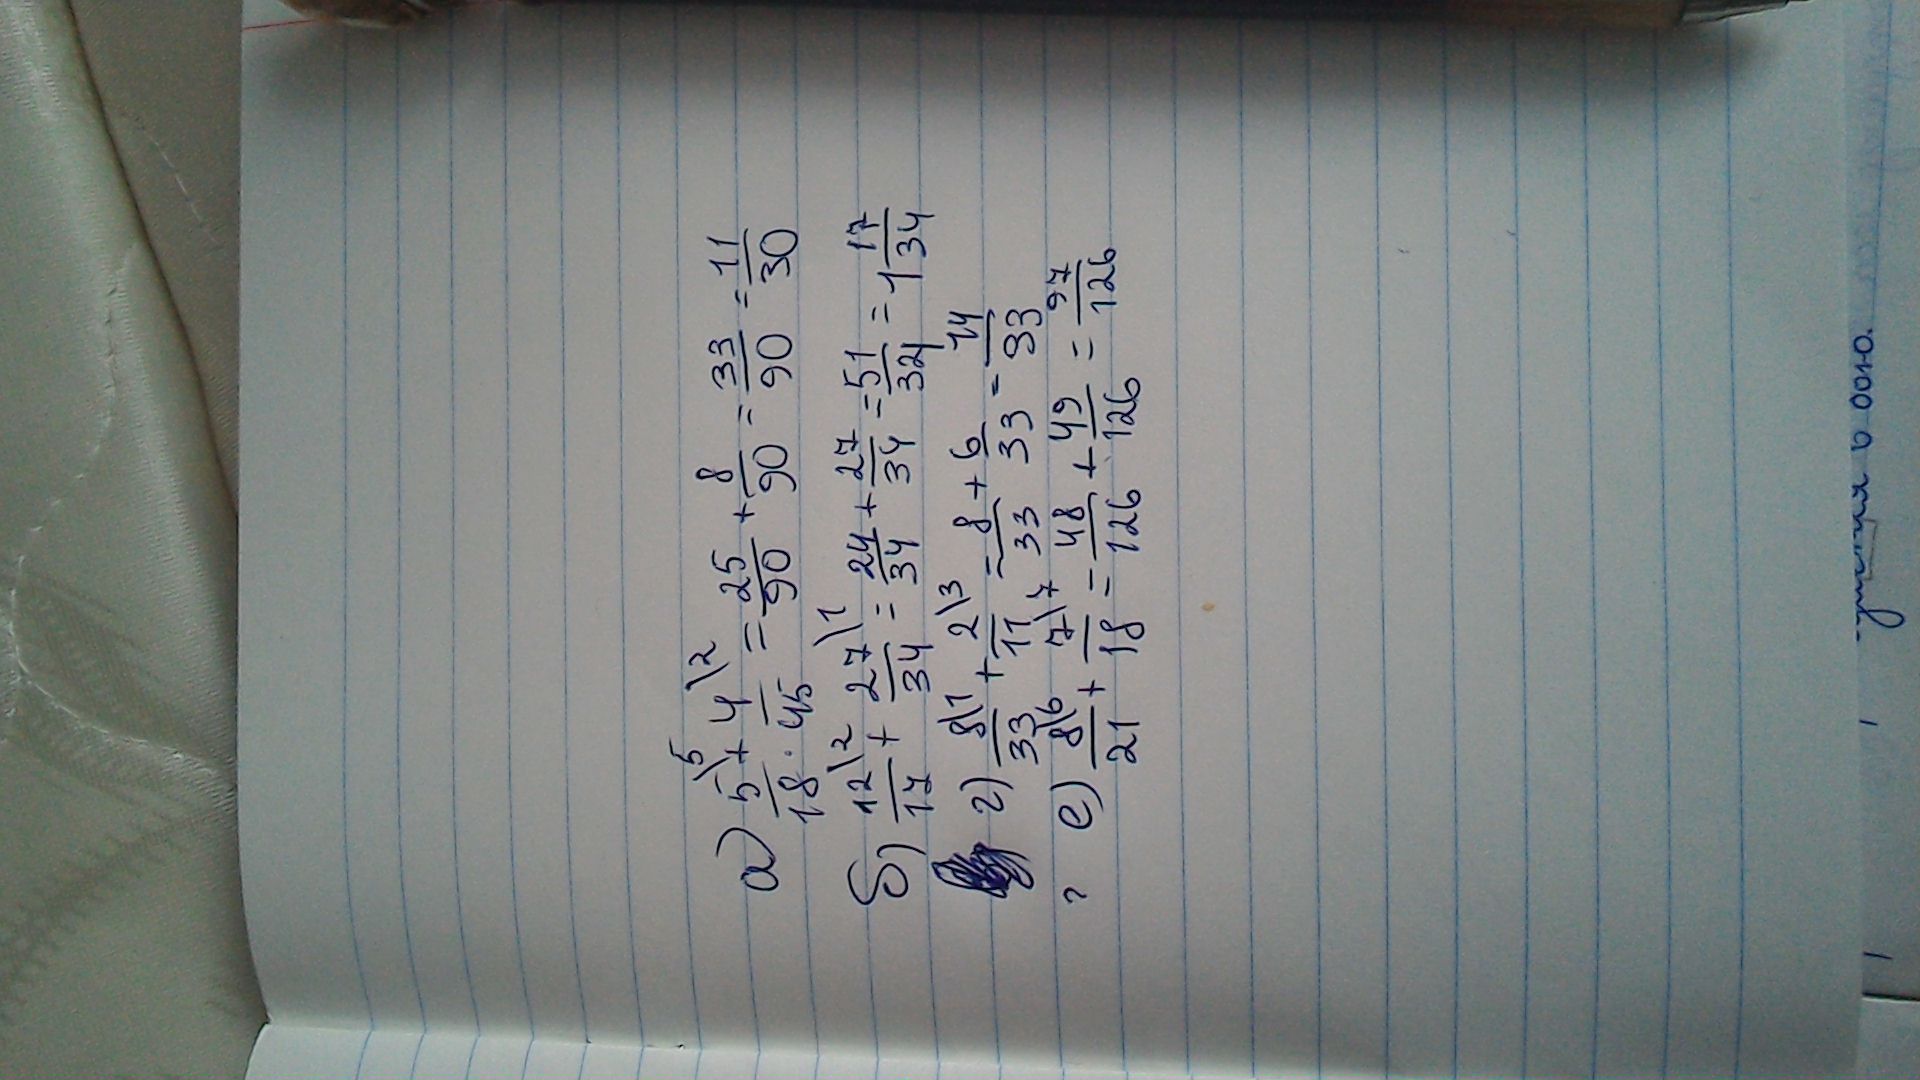 а) 5\5/18 + 4\2/45 = 25/90 + 8/90 = 33/90 = 11/30
б) 12\2/17 + 27\1/34 = 24/34 + 27/34 = 51/34 = 1 17/34
г) 8\1/33 + 2\3/11 = 8/33 + 6/33 = 14/33
е) 8\6/21 + 7\7/18 = 48/126 + 49/126 = 97/126